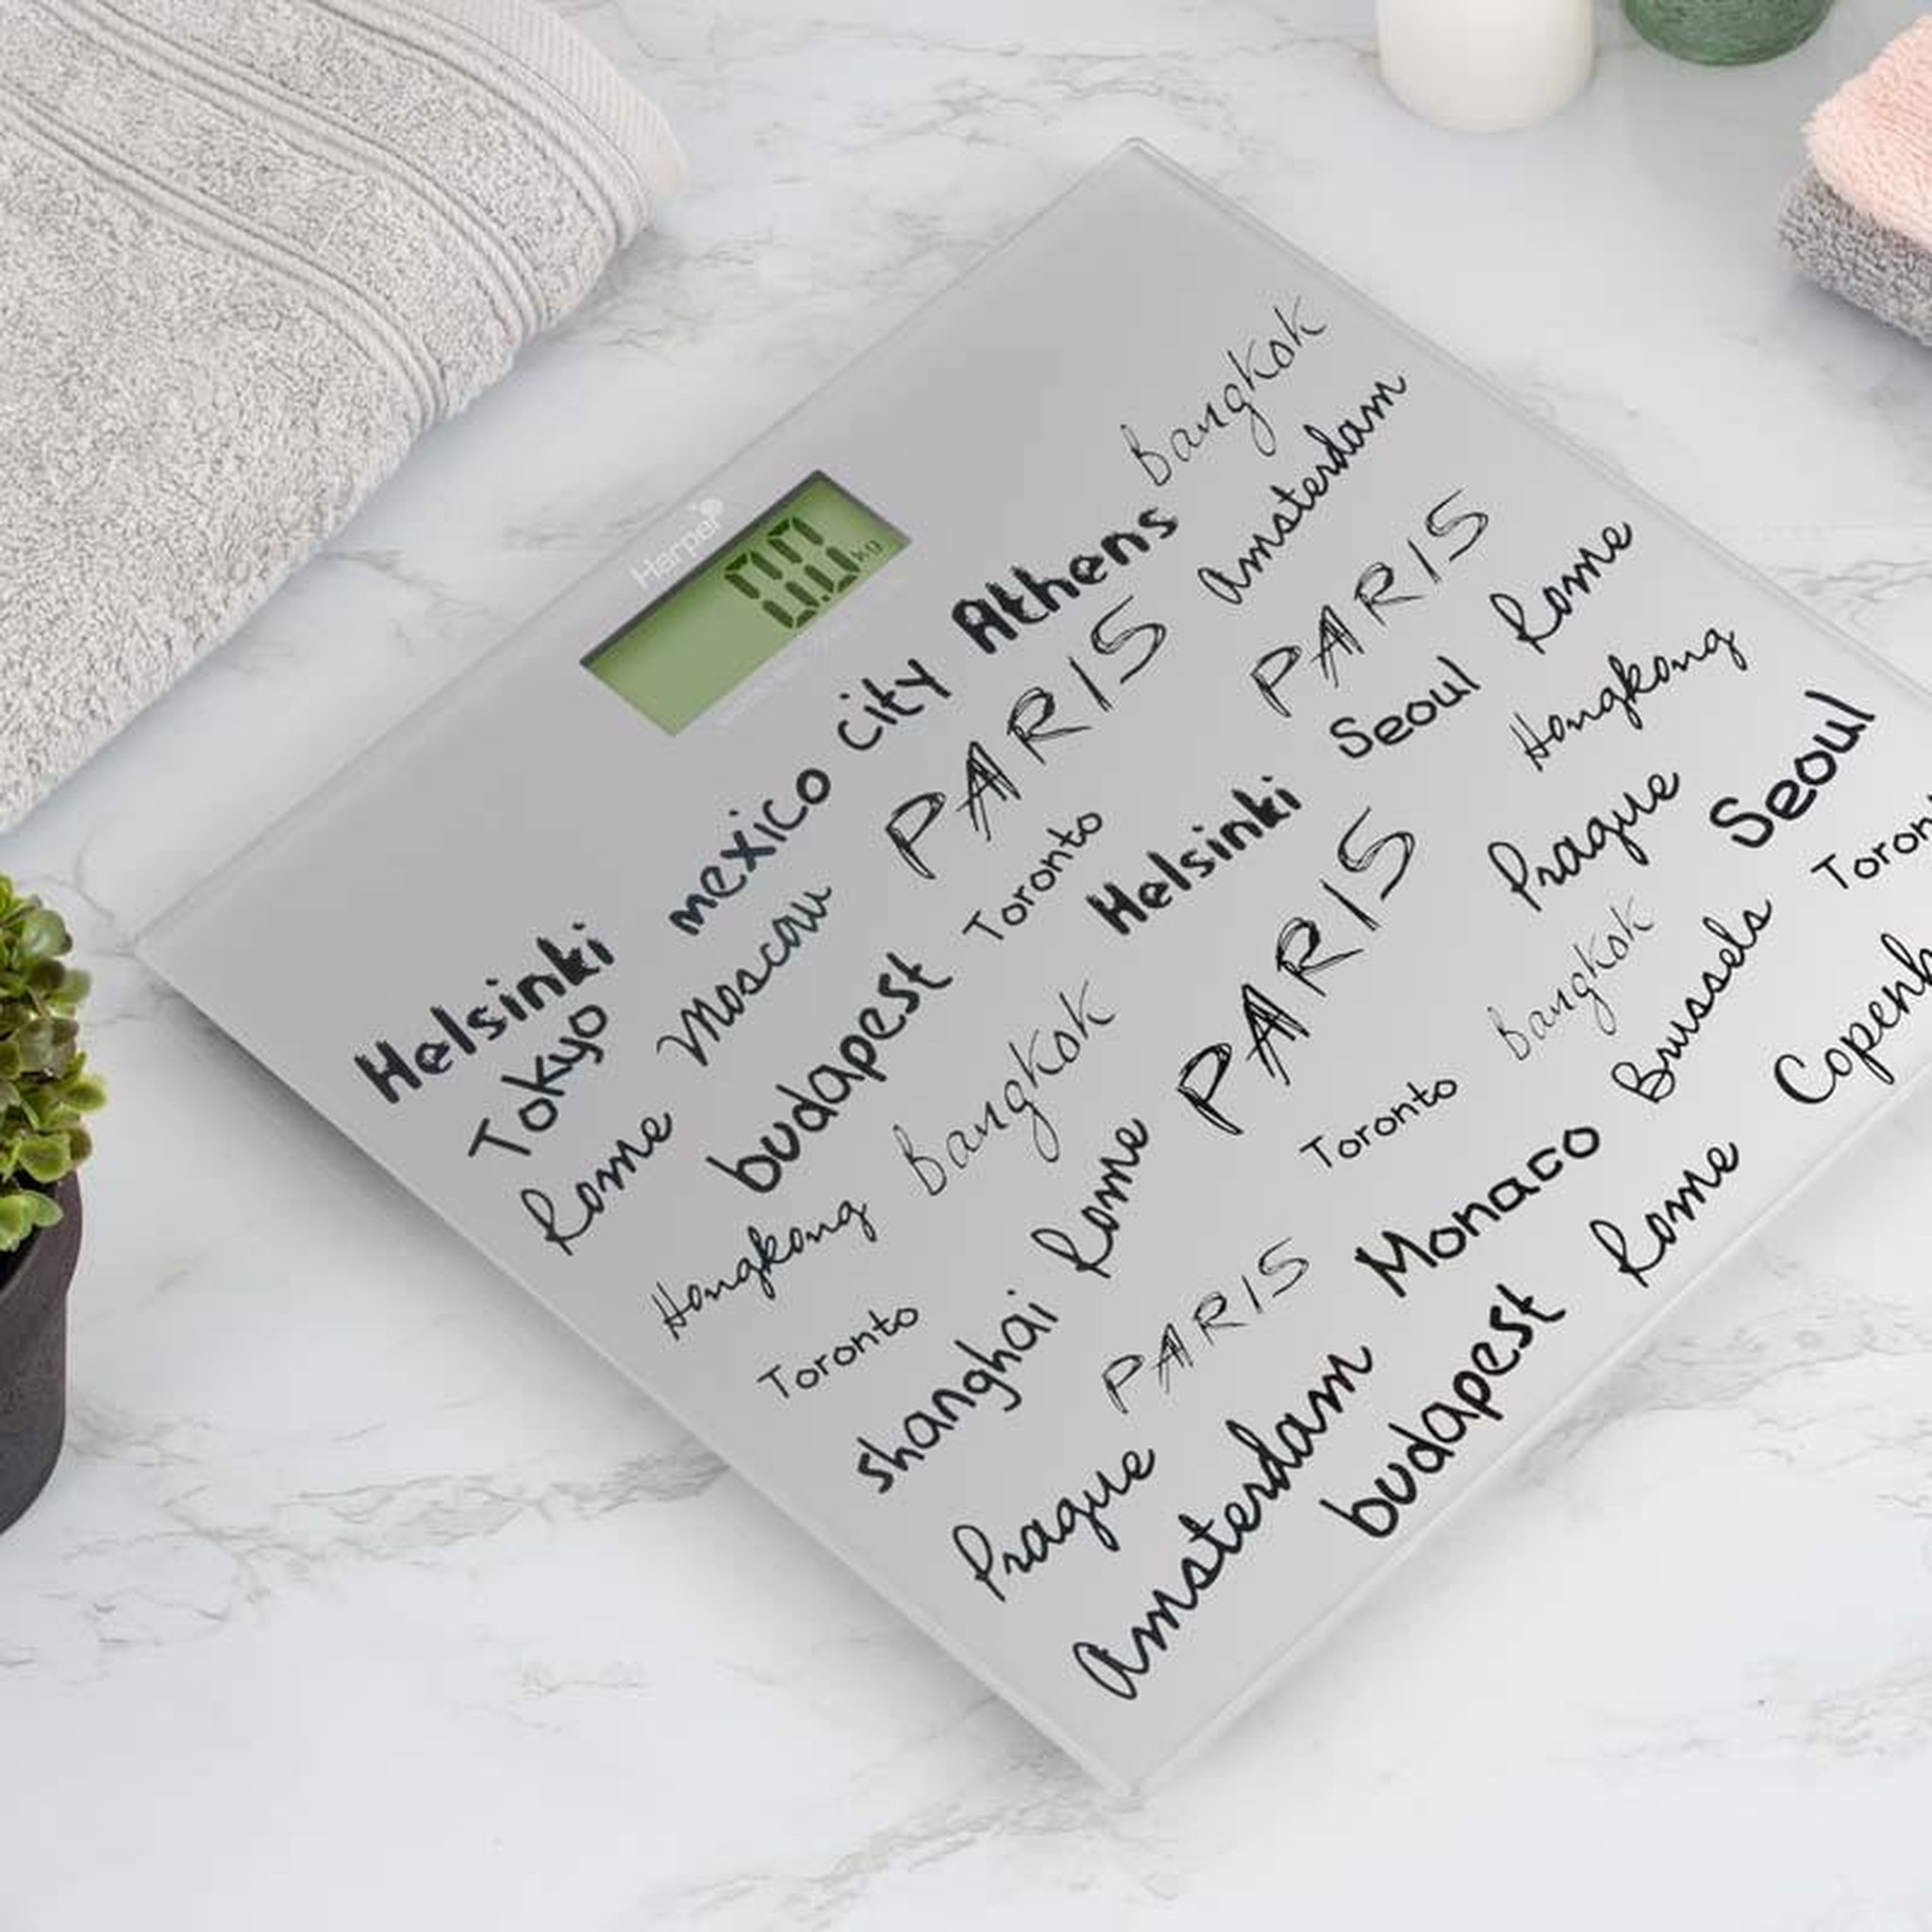 Harper
0.0 kg
Helsinki mexico city Athens Bangkok
Tokyo Moscow PARIS Amsterdam
Rome budapest Toronto Helsinki PARIS
Hongkong Bangkok Seoul Rome
Toronto Rome PARIS Hongkong
shanghai PARIS Toronto Prague
Prague Bangkok Seoul
Amsterdam Monaco Brussels Toron
budapest Rome Copenh